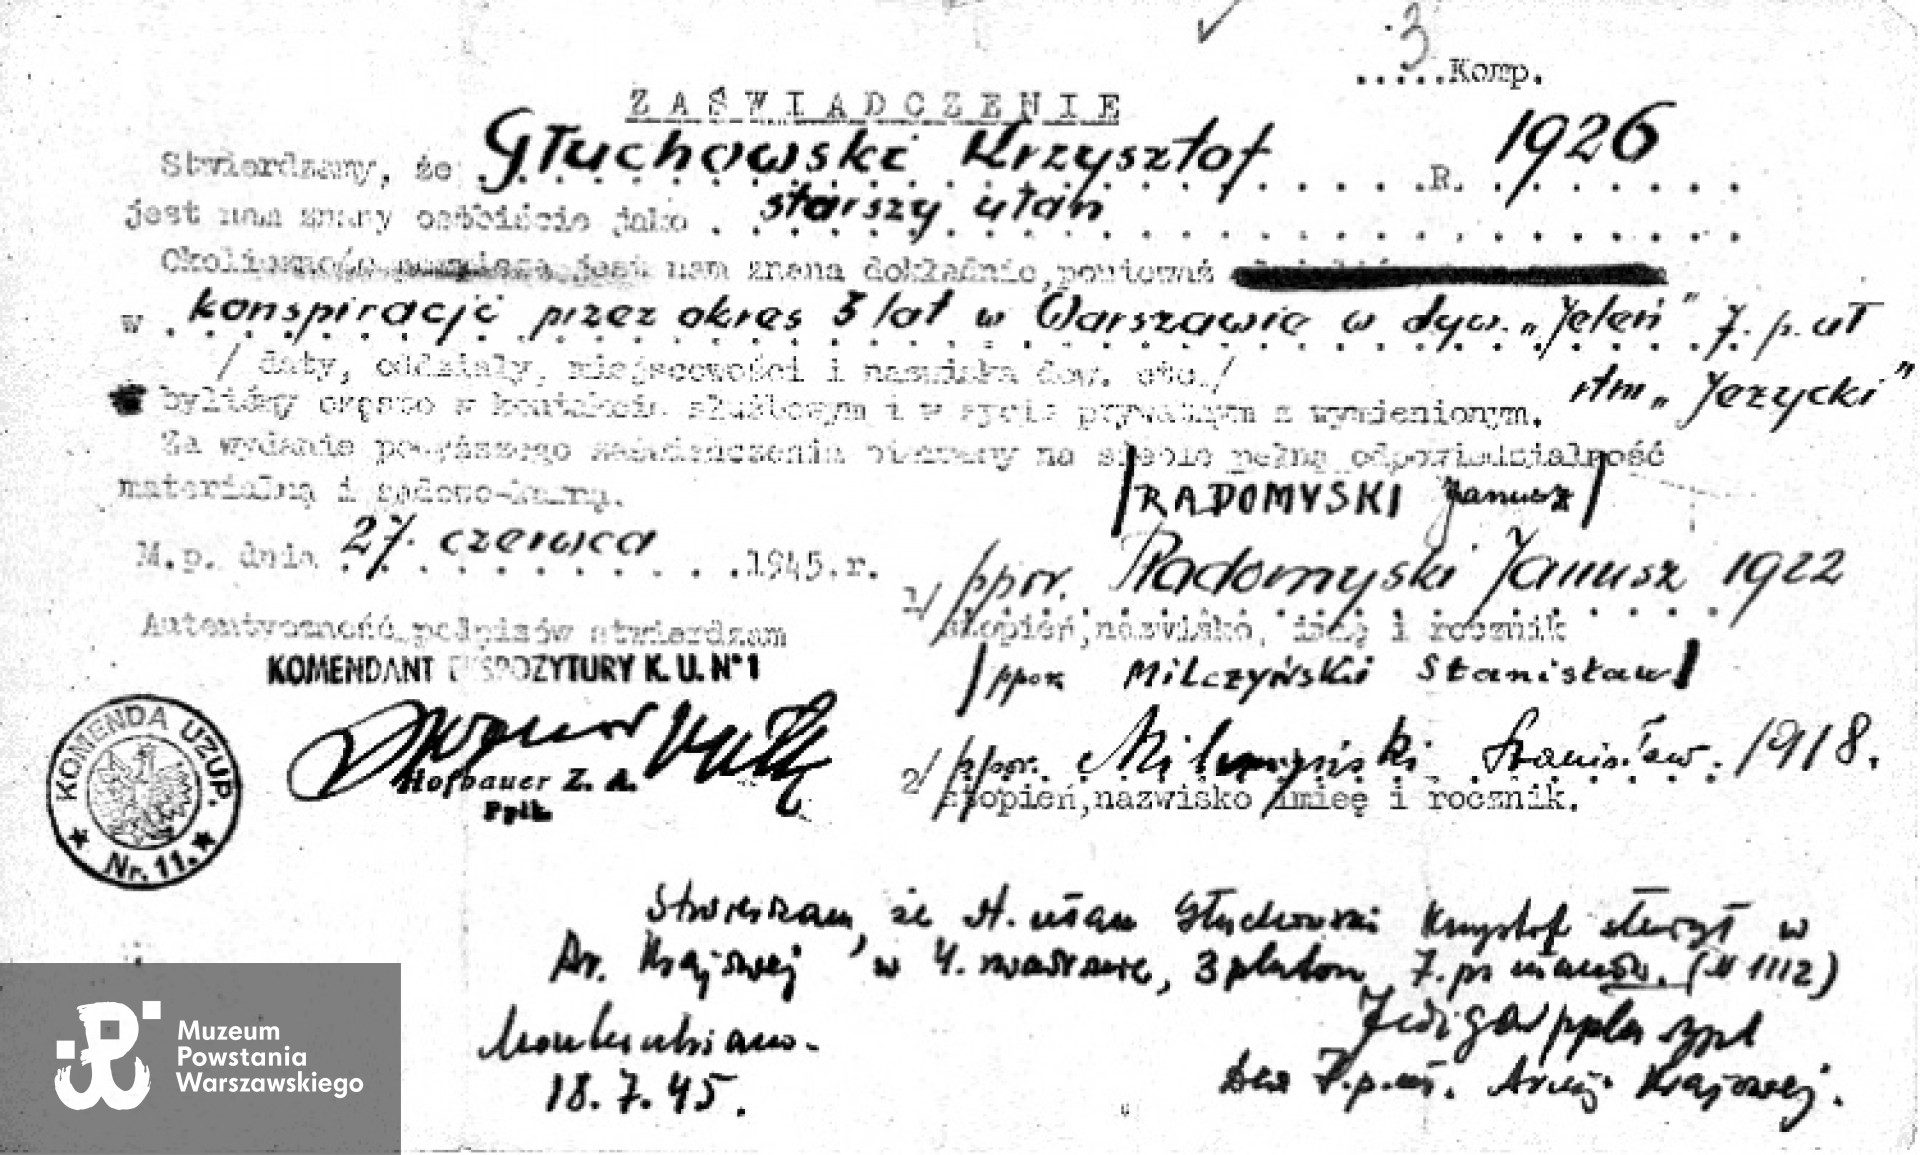 3
.....Komp.
ZAŚWIADCZENIE
Stwierdzamy, że Głuchowski Krzysztof R. 1926
jest nam znany osobiście jako starszy ułan
Okoliczność jest nam znana dokładnie, ponieważ
w konspiracji przez okres 3 lat w Warszawie w dyw. „Jeleń" 7. p. uł
/ daty, oddziały, miejscowości i nazwiska dow. etc./
rtm „Jerzycki"
byliśmy często w kontakcie służbowym i w życiu prywatnym z wymienionym.
Za wydanie powyższego zaświadczenia bierzemy na siebie pełną odpowiedzialność
materialną i sądowo-karną.
/RADOMYSKI Janusz/
M.p. dnia 27. czerwca 1945.r.
1/ ppor. Radomyski Janusz 1922
stopień, nazwisko, imię i rocznik
Autentyczność podpisów stwierdzam
KOMENDANT EKSPOZYTURY K. U. N° 1
/ppor Milczyński Stanisław/
2/ ppor. Milczyński Stanisław. 1918.
stopień, nazwisko imię i rocznik.
Hofbauer Z. A.
Pplk.
KOMENDA UZUP.
Nr. 11.
Stwierdzam, że st. ułan Głuchowski Krzysztof służył w
Ar. Krajowej w 4. szwadronie, 3 pluton 7. p. ułanów.
18.7.45.
Dca 7. p. uł. Armii Krajowej.
Muzeum
Powstania
Warszawskiego